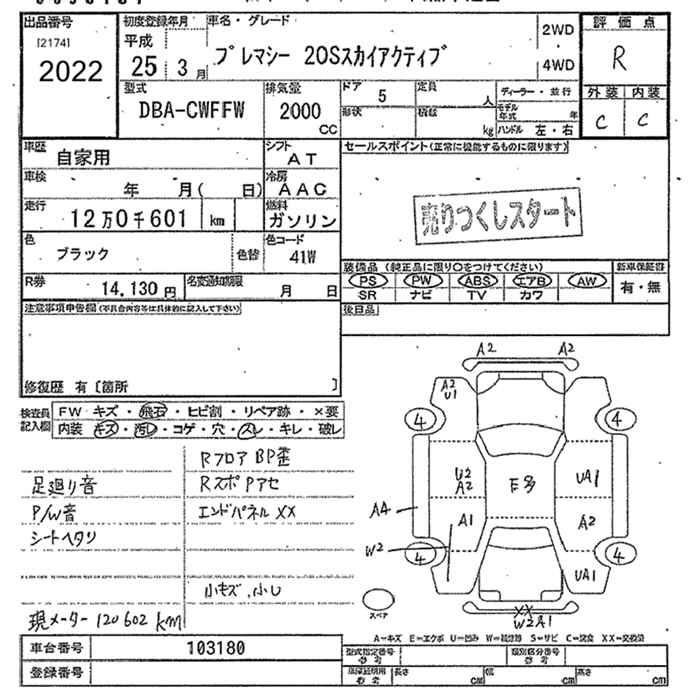 出品番号
[2174]
2022
初度登録年月
平成
25年3月
車名・グレード
プレマシー 20Sスカイアクティブ
2WD
4WD
評価点
R
型式
DBA-CWFFW
排気量
2000
CC
ドア
5
形状
定員
人
積載
kg
ディーラー・並行
モデル年式 年
ハンドル 左・右
外装 内装
C C
車歴
自家用
シフト
AT
車検
年 月( 日)
冷房
AAC
走行
12万0千601 km
燃料
ガソリン
色
ブラック
色替
色コード
41W
R券
14,130円
名変通知期限
月 日
セールスポイント(正常に機能するものに限ります)
売りつくしスタート
装備品(純正品に限り○をつけてください)
PS PW ABS エアB AW
SR ナビ TV カワ
新車保証書
有・無
後日品
注意事項申告欄(不具合内容等は具体的に記入して下さい)
修復歴 有〔箇所 〕
検査員
記入欄
FW キズ・飛石・ヒビ割・リペア跡・×要
内装 キズ・汚レ・コゲ・穴・スレ・キレ・破レ
RフロアBP歪
足廻り音
RスポPアセ
P/W音
エンドパネルXX
シートヘタリ
小キズ、小U
現メーター 120602km
A2 A2
A2
U1
4 4
U2
A2
E多
UA1
A4
A1
A2
W2
4 4
UA1
XX
W2A1
スペア
A=キズ E=エクボ U=凹み W=補修跡 S=サビ C=腐食 XX=交換済
車台番号
103180
登録番号
型式指定番号
参考
類別区分番号
参考
車庫証明用
参考
長さ cm
幅 cm
高さ cm